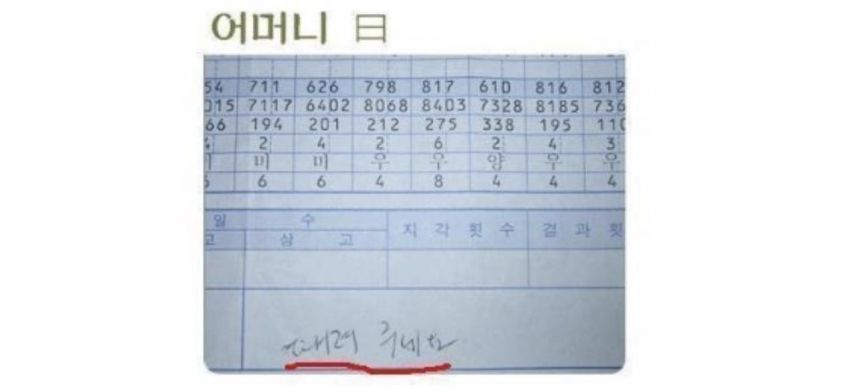 어머니 曰
54 711 626 798 817 610 816 812
015 7117 6402 8068 8403 7328 8185 736
66 194 201 212 275 338 195 110
2 4 2 6 2 4 3
미 미 우 우 양 우 우
6 6 4 8 4 4 4
일 수
고 삼 고 지 각 횟 수 결 과 횟
때려 주세요